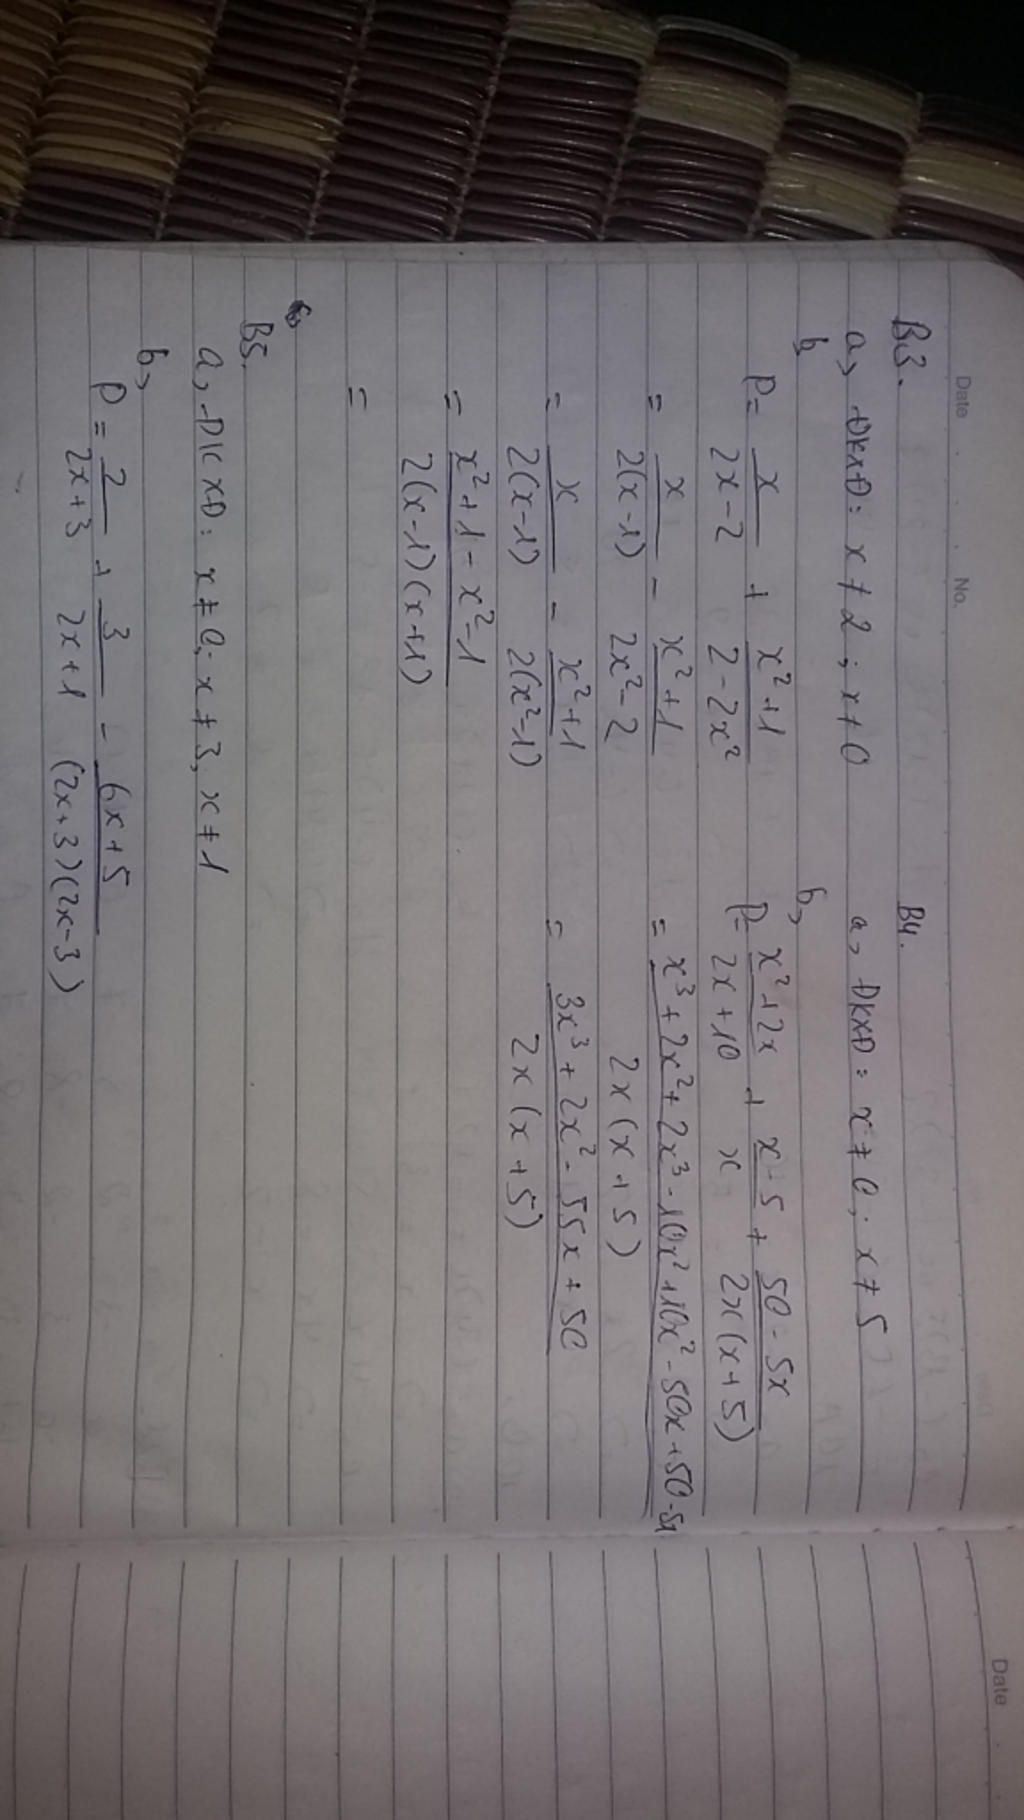 Date No.
B3.
a, ĐKXĐ: x ≠ 2 ; x ≠ 0
b,
P = x/(2x-2) + (x²+1)/(2-2x²)
= x/(2(x-1)) - (x²+1)/(2x²-2)
= x/(2(x-1)) - (x²+1)/(2(x²-1))
= (x²+1-x²-1)/(2(x-1)(x+1))
=
B4.
a, ĐKXĐ: x ≠ 0; x ≠ 5
b,
P = (x²+2x)/(2x+10) + (x-5)/x + (50-5x)/(2x(x+5))
= (x³+2x²+2x³-10x²+10x²-50x+50-5x)/(2x(x+5))
= (3x³+2x²-55x+50)/(2x(x+5))
B5.
a, ĐKXĐ: x ≠ 0; x ≠ 3, x ≠ 1
b,
P = 2/(2x+3) + 3/(2x+1) - (6x+5)/((2x+3)(2x-3))
Date